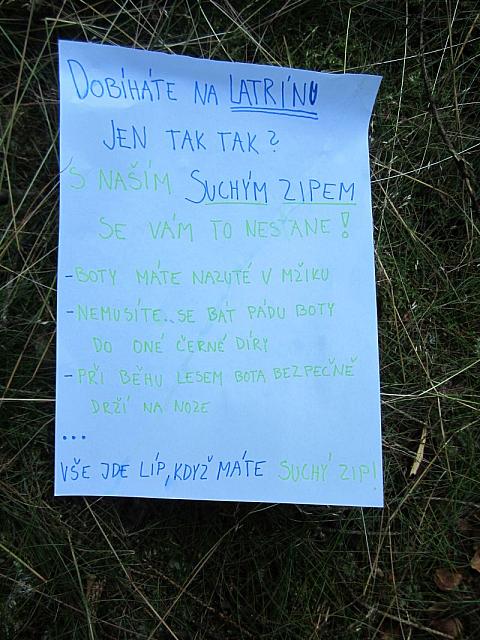 DOBÍHÁTE NA LATRÍNU
JEN TAK TAK?
S NAŠÍM SUCHÝM ZIPEM
SE VÁM TO NESTANE!
-BOTY MÁTE NAZUTÉ V MŽIKU
-NEMUSÍTE..SE BÁT PÁDU BOTY
DO ONÉ ČERNÉ DÍRY
-PŘI BĚHU LESEM BOTA BEZPEČNĚ
DRŽÍ NA NOZE
...
VŠE JDE LÍP, KDYŽ MÁTE SUCHÝ ZIP!